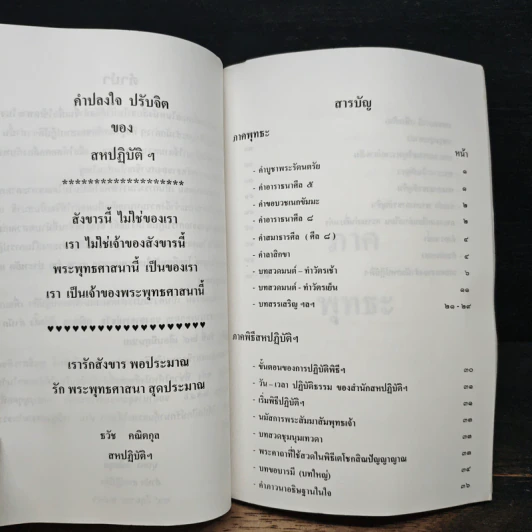 คำปลงใจ ปรับจิต
ของ
สหปฏิบัติ ฯ
********************
สังขารนี้ ไม่ใช่ของเรา
เรา ไม่ใช่เจ้าของสังขารนี้
พระพุทธศาสนานี้ เป็นของเรา
เรา เป็นเจ้าของพระพุทธศาสนานี้
เรารักสังขาร พอประมาณ
รัก พระพุทธศาสนา สุดประมาณ
ธวัช คณิตกุล
สหปฏิบัติฯ
สารบัญ
ภาคพุทธะ
หน้า
- คำบูชาพระรัตนตรัย ๑
- คำอาราธนาศีล ๕ ๑
- คำขอบวชเนกขัมมะ ๒
- คำอาราธนาศีล ๘ ๒
- คำสมาธานศีล (ศีล ๘)
- คำลาสิกขา
- บทสวดมนต์ - ทำวัตรเช้า
- บทสวดมนต์ - ทำวัตรเย็น ๑๑
- บทสรรเสริญ ฯลฯ ๒๐-๒๙
ภาคพิธีสหปฏิบัติฯ
- ขั้นตอนของการปฏิบัติพิธีฯ ๓๐
- วัน - เวลา ปฏิบัติธรรม ของสำนักสหปฏิบัติฯ ๓๑
- เริ่มพิธีปฏิบัติฯ ๓๑
- นมัสการพระสัมมาสัมพุทธเจ้า ๓๑
- บทสวดชุมนุมเทวดา ๓๑
- พระคาถาที่ใช้สวดในพิธีเตโชกสิณปัญญาญาณ ๓๑
- บทขอบารมี (บทใหญ่) ๓๔
- คำภาวนาอธิษฐานในใจ ๓๖
ภาค
พุทธะ